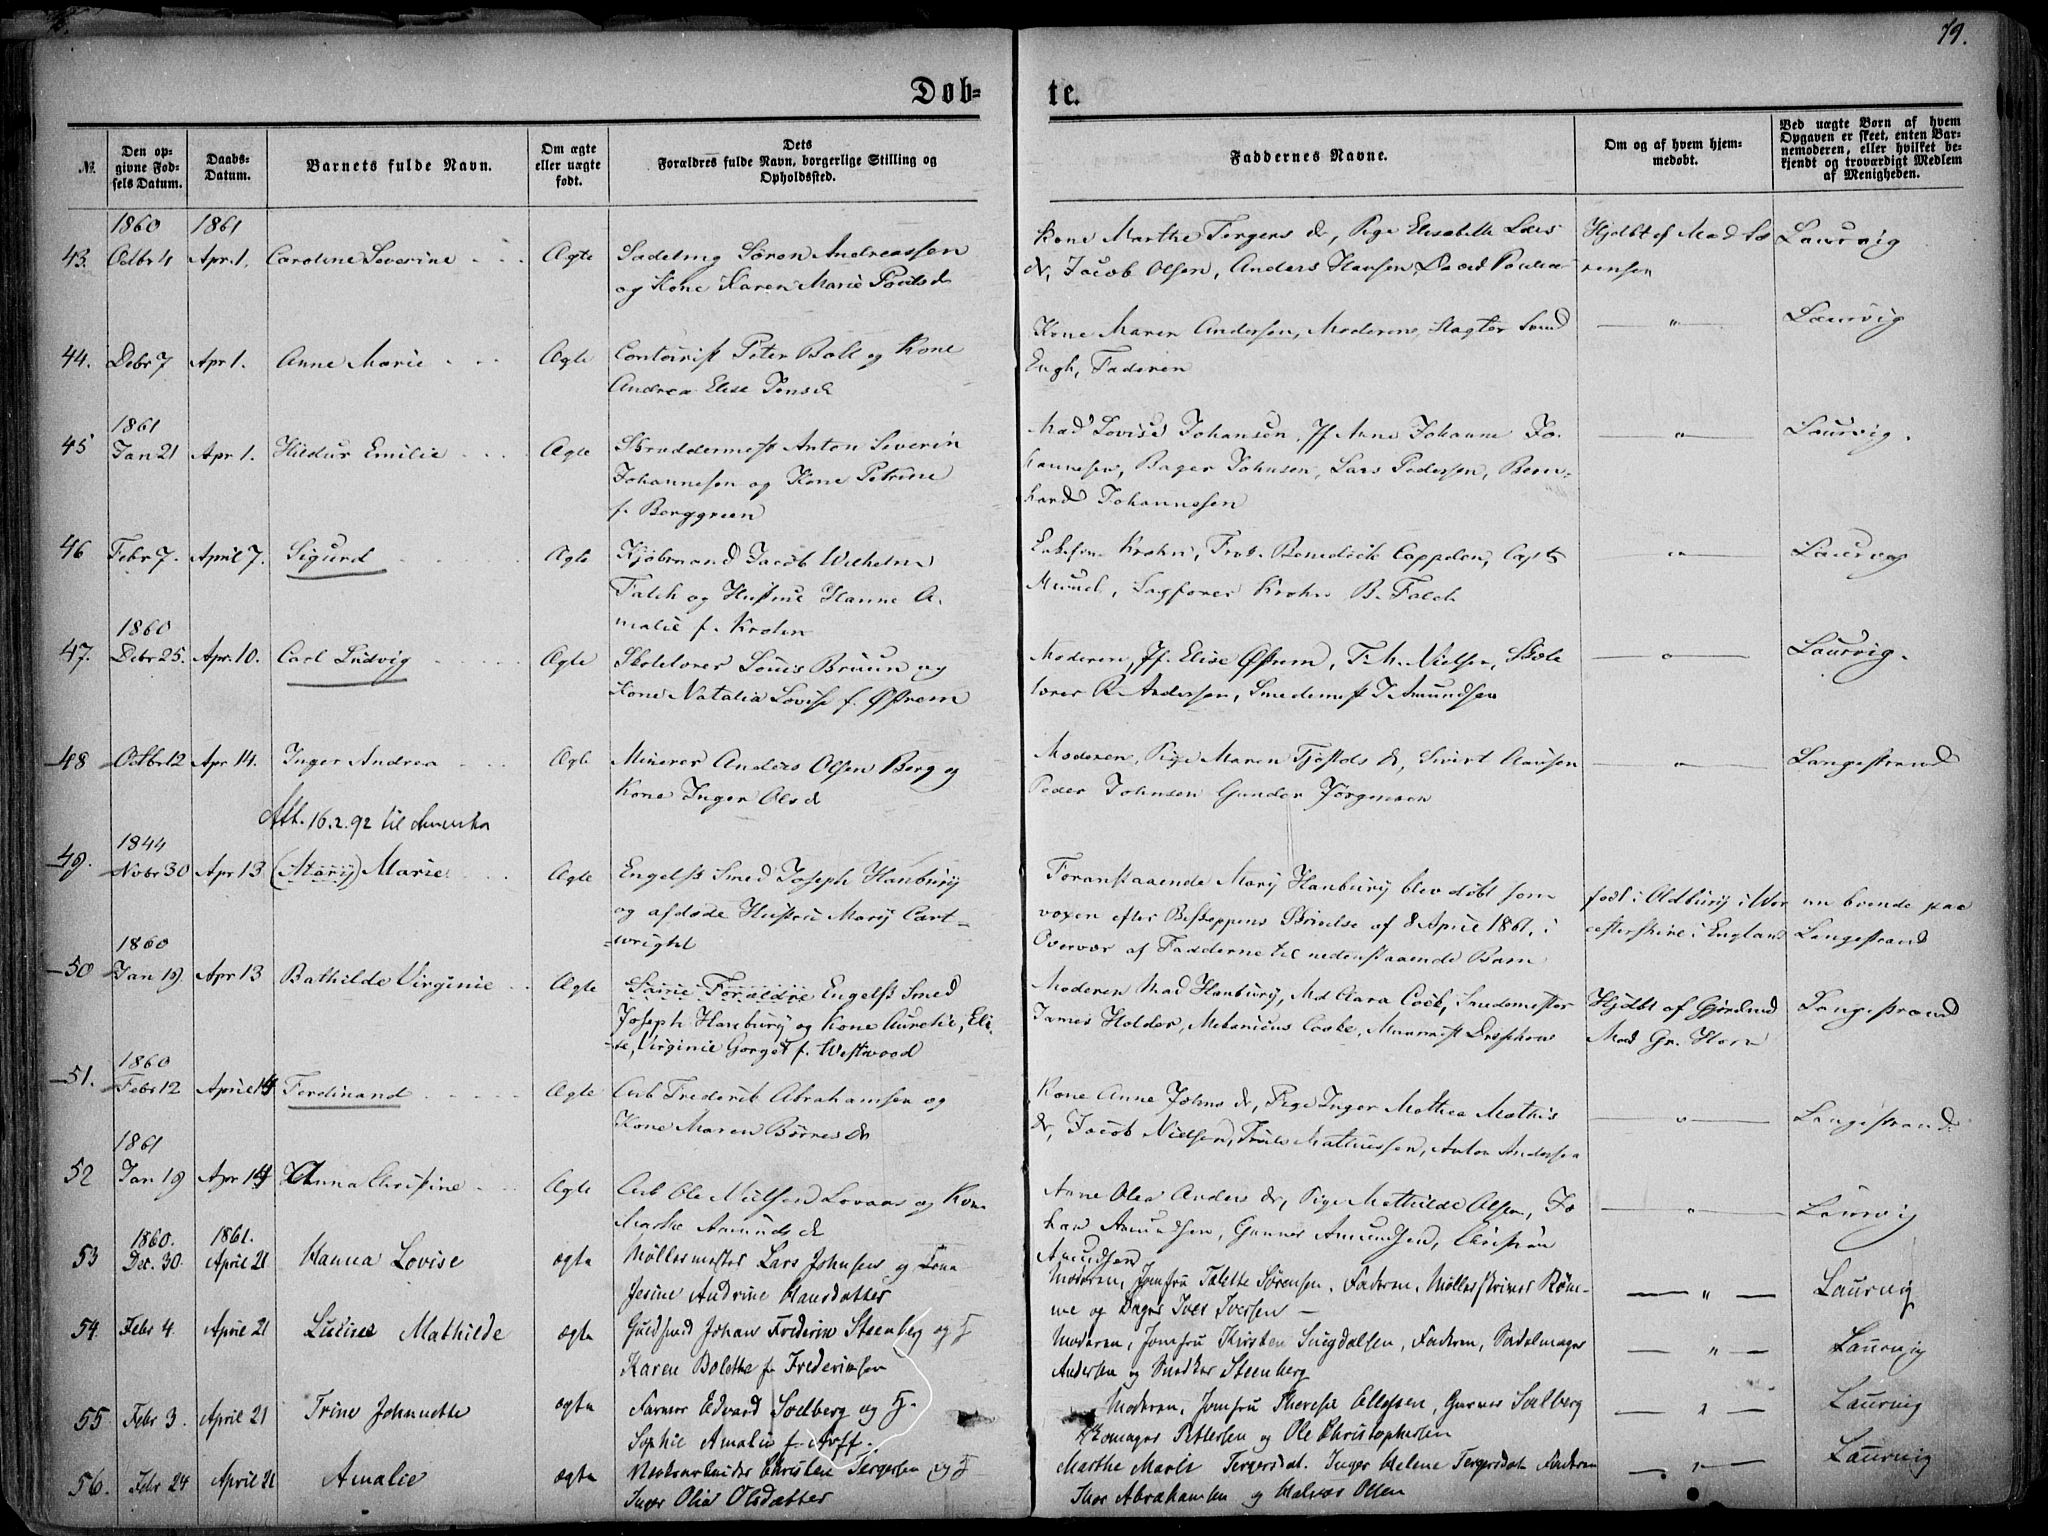 79.
Døb-
te.
№
Den op-
givne Fød-
sels Datum.
Daabs-
Datum.
Barnets fulde Navn.
Om ægte
eller uægte
født.
Dets
Forældres fulde Navn, borgerlige Stilling og
Opholdssted.
Faddernes Navne.
Om og af hvem hjem-
medøbt.
Ved uægte Børn af hvem
Opgaven er skeet, enten Bar-
nemoderen, eller hvilket be-
kjendt og troværdigt Medlem
af Menigheden.
1860 1861
43. Octbr 4 Apr. 1. Caroline Severine Ægte Sadelmg Søren Andreassen
og Kone Karen Marie Pouls d
Kone Marthe Jørgens dr, Pige Elisabeth Lars
dr, Jacob Olsen, Anders Hansen
Hjdbt af Mad
Laurvig
44. Debr 7 Apr 1. Anne Marie Ægte Contoirist Peter Boll og Kone
Andrea Elise Jens d
Kone Maren Andersen, Moderen, Slagter Lund
Engh, Faderen
" Laurvig
1861
45 Jan 21 Apr 1. Hildur Emilie Ægte Skræddermest Anton Severin
Johannesen og Kone Petrine
f. Borggreen
Mad Lovise Johansen, Jf Anne Johanne Jo-
hannesen, Bager Johnsen, Lars Pedersen, Bern-
hard Johannssen
" Laurvig.
46 Febr 7. April 7. Sigurd Ægte Kjøbmand Jacob Wilhelm
Falch og Hustrue Hanne A-
malie f. Krohn
Krohn, Frk. Benedicte Cappelen, Capt
Sagfører Krohn B. Falch
" Laurvig
1860
47. Debr 25. Apr. 10. Carl Ludvig Ægte Skolelærer Louis Bruun og
Kone Natalia Lovise f. Østrem
Moderen, Jf. Elise Østrem, F. M. Nielsen, Skole
lærer R. Andersen, Smedemest J Amundsen
" Laurvig.
48 Octbr 12 Apr 14. Inger Andrea Ægte Minerer Anders Olsen Berg og
Kone Inger Ols d
Moderen, Pige Maren dr, Sivert
Peder Johnsen Gunder Jørgensen
" Langestrand
Att. 16.2.92 til Amerika
1844
49. Nobr 30 Apr 13 (Mary) Marie Ægte Engelsk Smed Joseph Hanbury
og afdøde Hustru Mary Cart-
wright
Foranstaaende Mary Hanbury blev døbt som
voxen efter Biskoppens Skrivelse af 8 April 1861, i
Overvær af Fadderne til nedenstaaende Barn
født i Oldbury i Wor
cestershire i England
Langestrand
1860
50 Jan 19 Apr 13 Bathilde Virginie Ægte Samme Forældre Engelsk Smed
Joseph Hanbury og Kone Aurelie, Eli-
se, Virginie Gorget f. Westwood
Moderen Mad Hanbury, Md Clara Cock, Smedemester
James Holder, Mekanicus Cooke, Murmest
Hjdbt af Gjordmd
Mad Gr. Horn
Langestrand
1860
51. Febr 12 April 14 Ferdinand Ægte Arb Frederik Abrahamsen og
Kone Maren Børres dr
Kone Anne Johns dr, Pige Inger Mathea Mathis
dr, Jacob Nielsen, Truls Mathissen, Anton Andersen
" Langestrand
1861
52 Jan 19 Apr 14 Anna Christine Ægte Arb Ole Nielsen Lovaas og Kone
Marthe Amunds d
Anne Olea Anders dr, Pige Mathilde Olsen, Jo
han Amundsen, Gunner Amundsen, Christian
Amundsen
" Laurvig
1860. 1861.
53 Dec. 30. April 21 Hanna Lovise ægte Møllermester Lars Johnsen og Kone
Jesine Andrine Hansdatter
Moderen, Jomfru Talette Sørensen, Faderen, Møllerskriver Røn-
ne og Bager Iver Iversen
" Laurvig
54. Febr 4. April 21 Mathilde ægte Guldsmd Johan Frederik Steenberg og H
Karen Bolette f. Frederiksen
Moderen, Jomfru Kirsten Sugdalsen, Faderen, Sadelmager
Andersen og Snedker Steenberg
" Laurvig
55 Febr 3. April 21 Trine Johnette ægte Farver Edvard Solberg og H.
Sophie Amalie f. Arff.
Moderen, Jomfru Therese Ellefsen, Garver Solberg
Skomager Pettersen og Ole Christophersen
" Laurvig
56. Febr 24 April 21 Amalie ægte Christen Jørgensen og H
Olia Olsdatter
Marthe Marie Jørgensdat. Inger Helene Jørgensdat. Faderen
Thor Abrahamsen og Halvor Olsen
" Laurvig